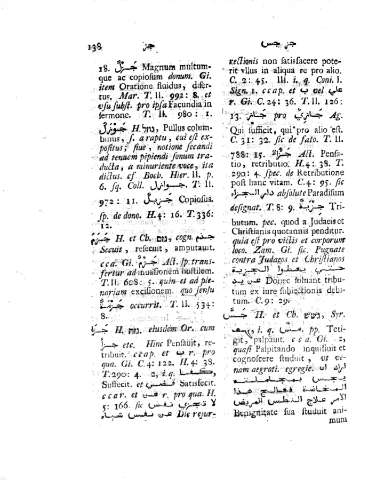 138 جز
جز جس
18. جَزْلٌ Magnum multum-
que ac copiosum donum. Gi.
item Oratione fluidus, diser-
tus. Mar. T. II. 992: 8. et
usu subst. pro ipsa Facundia in
sermone. T. II. 980: 1.
H. גוזל, Pullus colum-
binus, s. a raptu, cui est ex-
positus; sive, notione secandi
ad tenuem pipiendi sonum tra-
ducta, a minuriente voce, ita
dictus. cf Boch. Hier. II. p.
6. sq. Coll. جوازل T. II.
972: 11. جَزِيلٌ Copiosus.
sp. de dono. H. 4: 16. T. 336:
12.
جزم H. et Ch. גזם, cogn.
Secuit, resecuit, amputavit.
cca. Gi. Act. Ij. trans-
fertur ad missionem hostilem.
T. II. 608: 5. quin et ad ple-
nariam excisionem. quo sensu
occurrit. T. II. 534:
8.
ejusdem Or. cum
جز etc. Hinc Pensavit, re-
tribuit. c c a p. et ب r. pro
qua. Gi. C. 4: 122. H. 4: 38.
T. 290: 4. 2, i. q. كفا,
Suffecit. et قضى Satisfecit.
c c a r. et عن r. pro qua. H.
5: 166. sic لا تجزى نفس
عن نفس شيا Die rejur-
rectionis non satisfacere pote-
rit ullus in aliqua re pro alio.
C. 2: 45. III. i. q. Coni. I.
Sign. 1. c c a p. et ب vel على
r. Gi. C. 24: 36. T. II. 126:
13. جازى pro Ag.
Qui sufficit, qui pro alio est.
C. 31: 32. sic de fato. T. II.
788: 15. جزاء Act. Pensa-
tio, retributio. H. 4: 38. T.
290: 4. spec. de Retributione
post hanc vitam. C. 4: 95. sic
دار الجزاء absolute Paradisum
designat. T. 8: 9. جِزْيَةٌ Tri-
butum. pec. quod a Judæis et
Christianis quotannis penditur.
quia est pro victis et corporum
lues. Zam. Gi. sic. Pugnate
contra Judæos et Christianos
حتى يعطوا الجزية
عن يد Donec solvant tribu-
tum ex iure subiectionis debi-
tum. C. 9: 29.
جَسَّ H. et Ch. גשש, Syr.
i. q. مس. pp. Teti-
git, palpavit. c c a. Gi. 2,
quasi Palpitando inquisivit et
cognoscere studuit, ut ve-
nam aegroti. egregie.
يجس بمجاملته
المخافة فعالج هذا
الامر علاج النطس المريض
Benignitate sua studuit ani-
mum